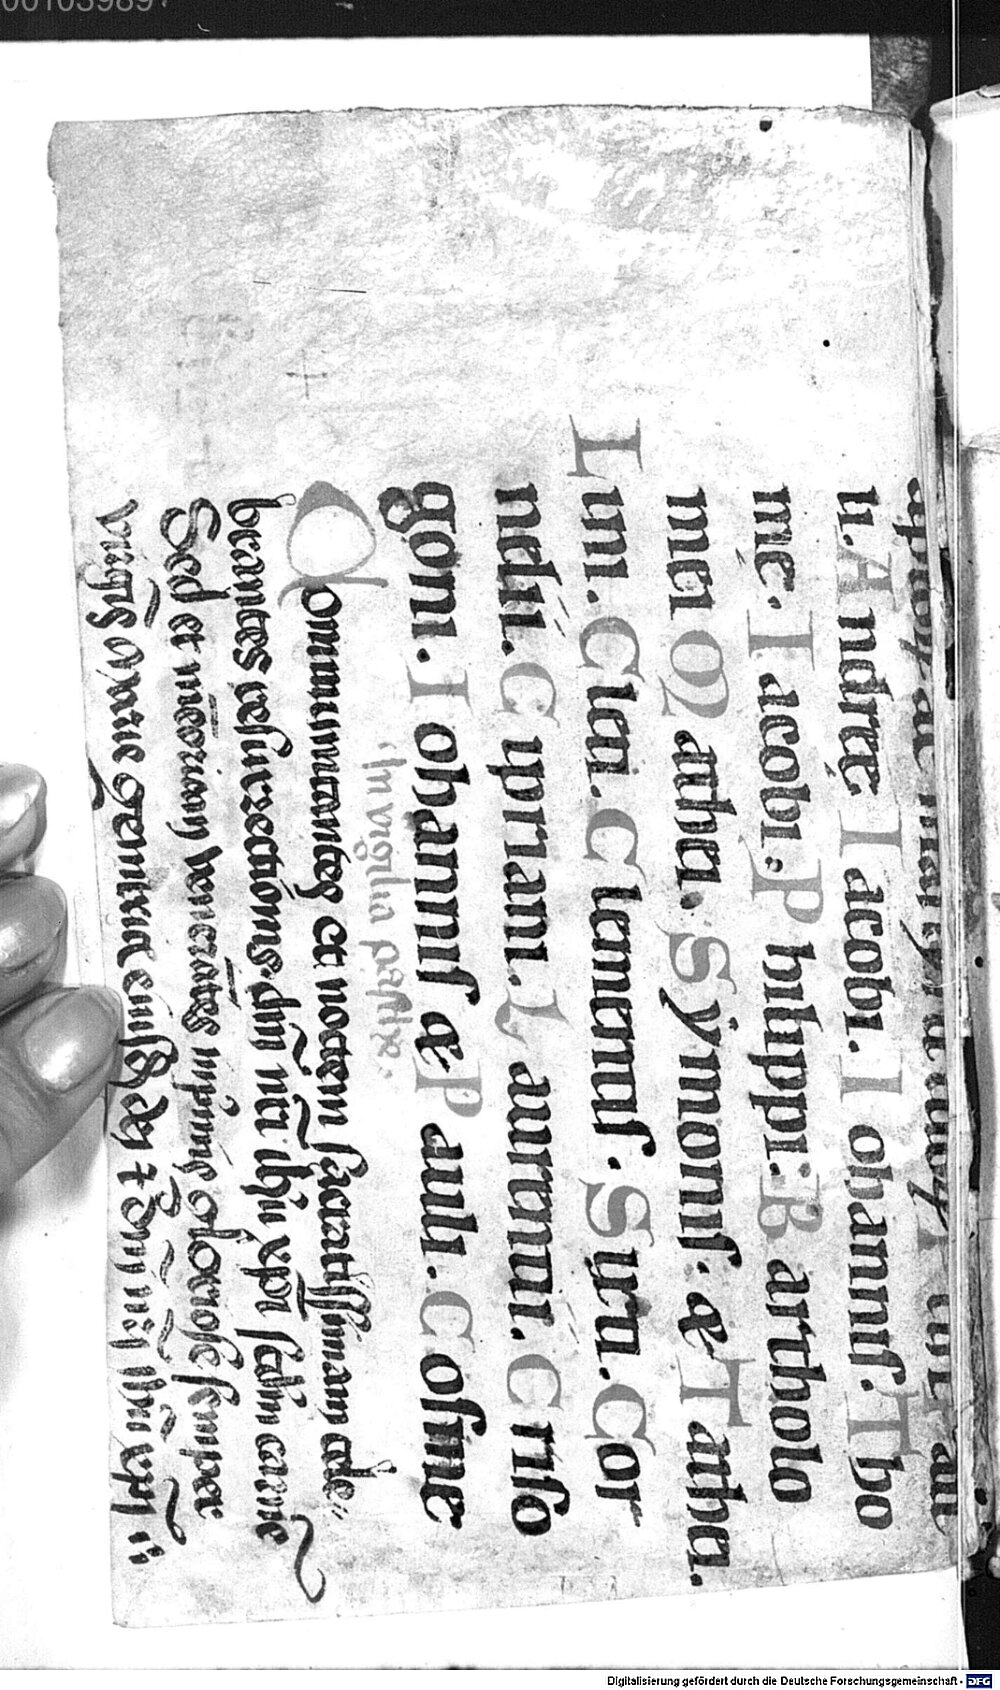 li. Andreę Iacobi. Iohannis. Tho
mę. Iacobi. Philippi. Bartholo
mei Mathei. Symonis. & Tathei.
Lini. Cleti. Clementis. Syxti. Cor
nelii. Cypriani. Laurentii. Criso
goni. Iohannis & Pauli. Cosme
In vigilia pasche.
Communicantes et noctem sacratissimam cele-
brantes resurrectionis dñi nr̃i ihũ xp̃i scdm carnē
Sed et memoriam venerātes inprimis gloriose semper
virgīs marie dei &  dñi nr̃i ihũ xp̃i
00103989
Digitalisierung gefördert durch die Deutsche Forschungsgemeinschaft - DFG